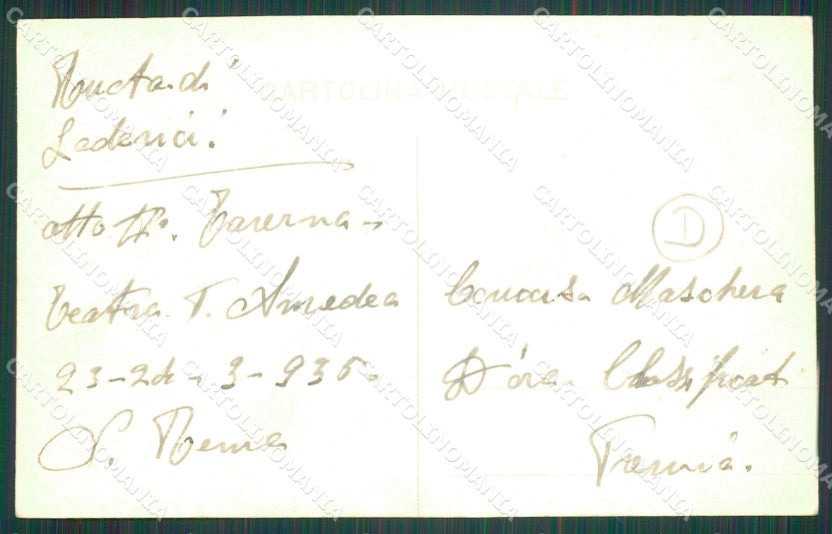 CARTOLINA POSTALE
di
atto IIº. Taverna -
Teatro. P. Amedeo
23-24-3-935.
S. Remo
D
Concorso Maschera
D'oro. Classificati
Premio.
CARTOLINOMANIA